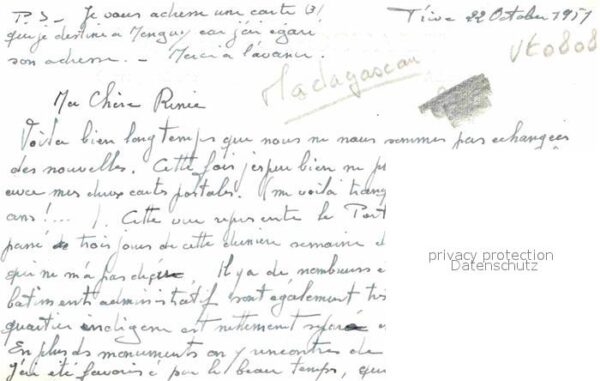 P.S. Je vous adresse une carte
que je destine à car j'ai égaré
son adresse. - Merci à l'avance.
22 October 1957
Vk0808
Madagascar
Ma Chère
Voilà bien longtemps que nous ne nous sommes pas échangées
des nouvelles. Cette fois j'espère bien ne
avec mes deux cartes postales. (me voilà
ans!... ). Cette vue représente le Port
passé trois jours de cette dernière semaine
qui ne m'a pas Il y a de nombreux
batiments administratifs sont également
quartier indigène est nettement séparé
En plus des monuments on y rencontre de
j'ai été favorisé par le beau temps,
privacy protection
Datenschutz